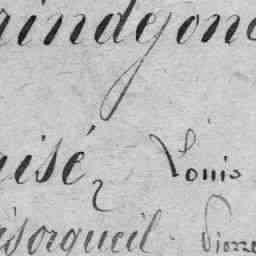 rindgon
aisé, Louis
isorqueil. Pierre